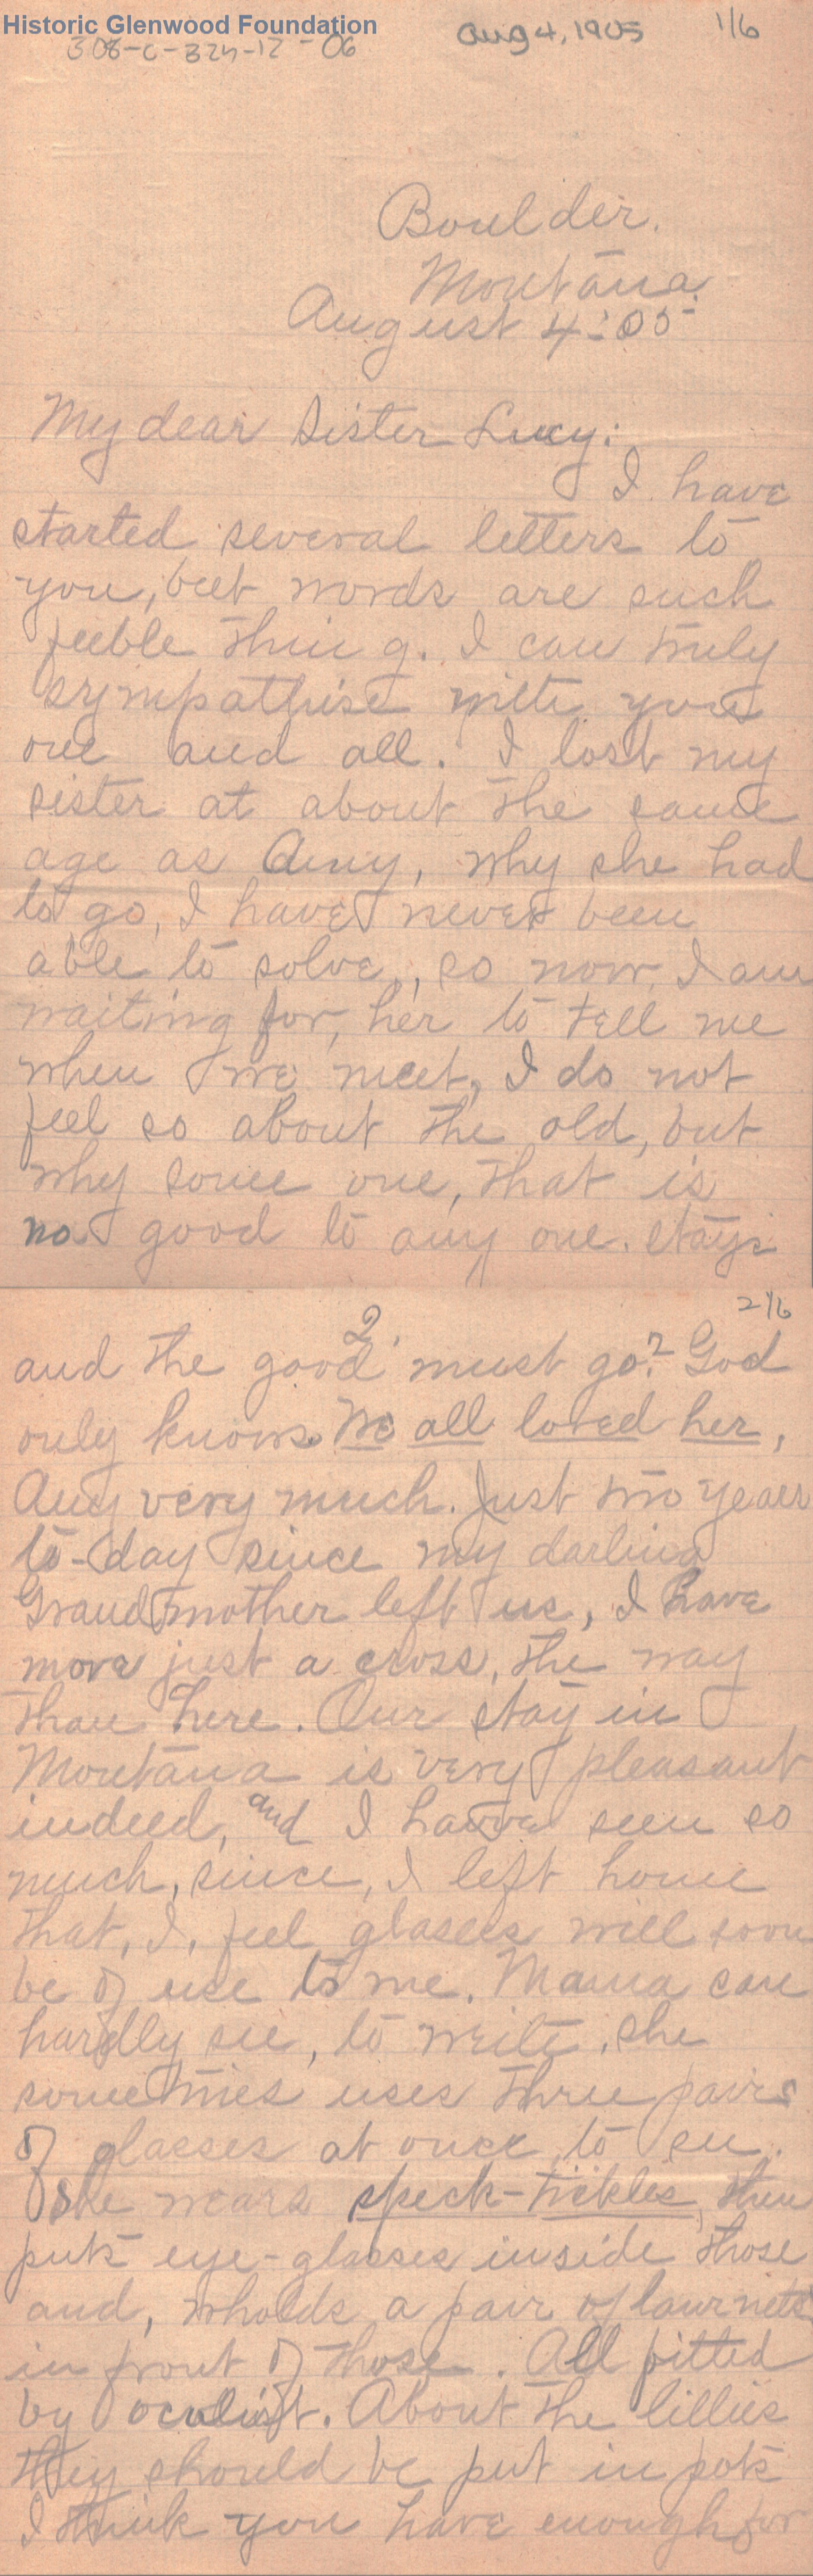 Historic Glenwood Foundation
308-C-324-12-06
Aug 4, 1905
1/6
Boulder.
Montana.
August 4:05
My dear Sister Lucy:
I have
started several letters to
you, but words are such
feeble thing. I can truly
sympathise with you
one and all. I lost my
sister at about the same
age as Amy, why she had
to go, I have never been
able to solve, so now I am
waiting for, her to tell me
when we meet, I do not
feel so about the old, but
why some one, that is
no good to any one. stays
2/6
2.
and the good must go? God
only knows. We all loved her,
Amy very much. Just two years
to-day since my darling
Grandmother left us, I have
more just a cross, the way
than here. Our stay in
Montana is very pleasant
indeed, and I have seen so
much, since, I left home
that, I, feel glasses will soon
be of use to me. Mama can
hardly see, to write, she
sometimes uses three pairs
of glasses at once to see.
She wears speck-tickles, then
puts eye-glasses inside those
and, wholds a pair of lawrnetts
in front of those. All fitted
by oculist. About the lillies
they should be put in pots
I think you have enough for